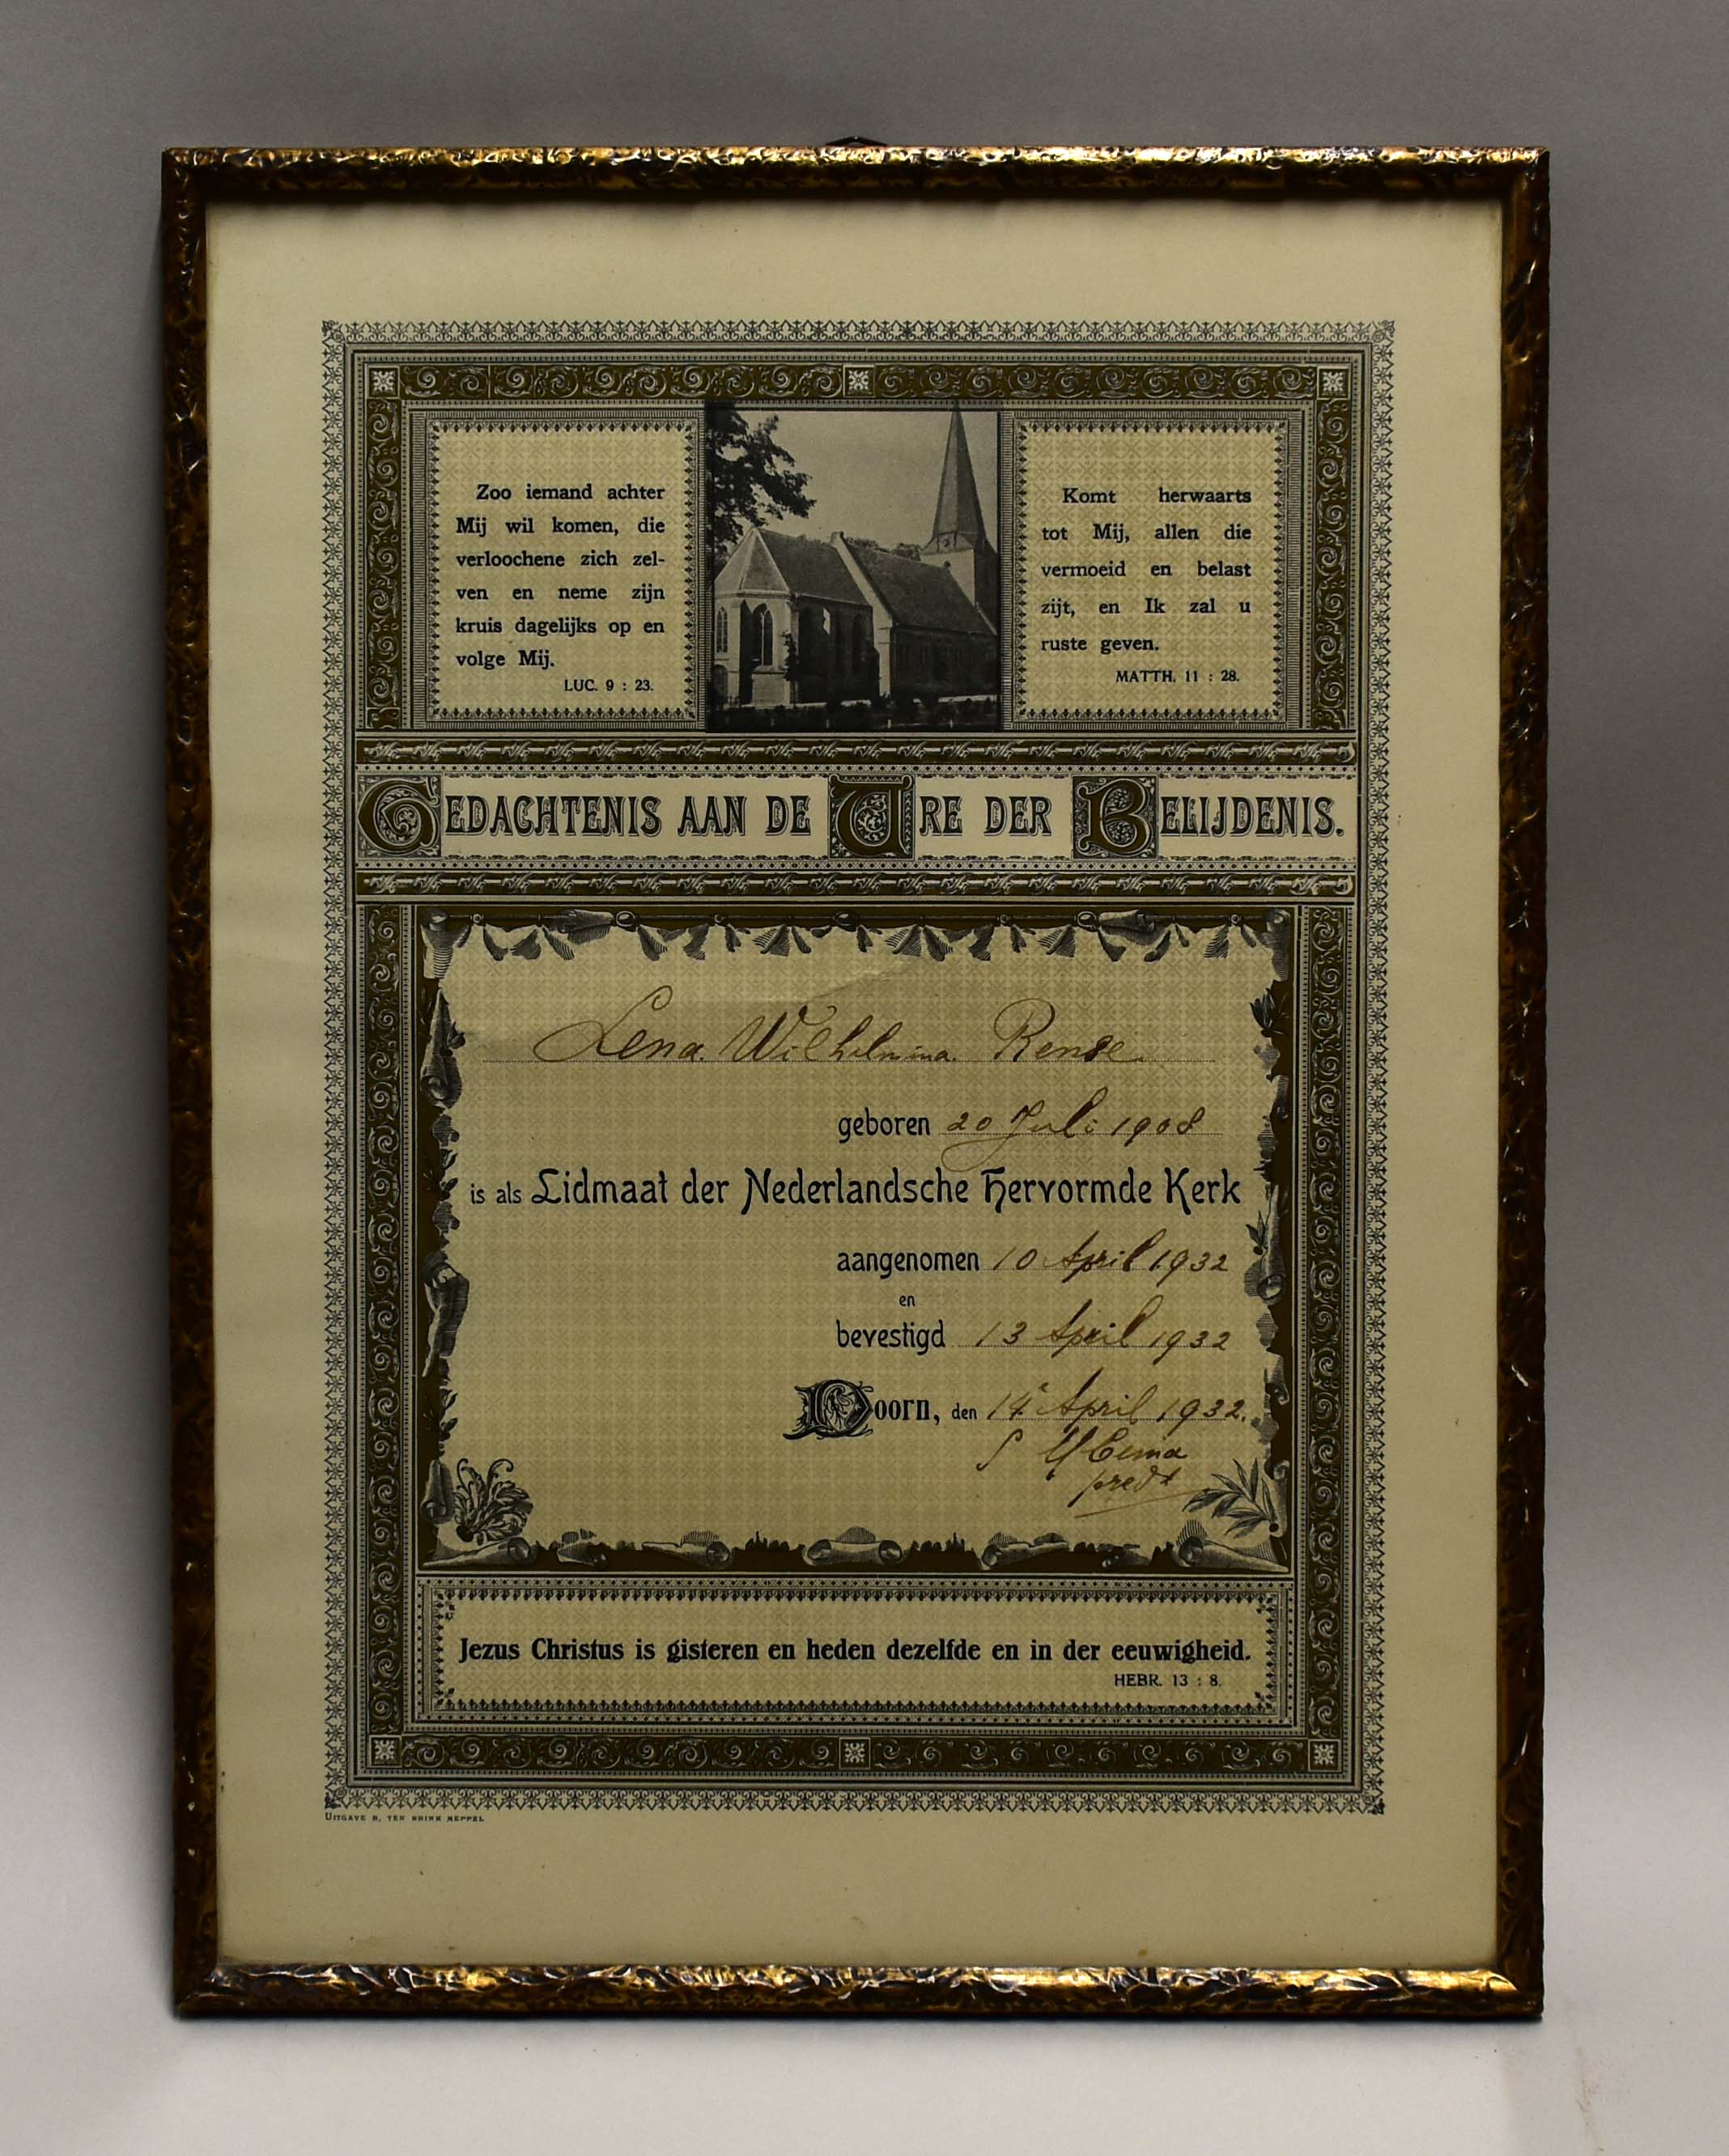 Zoo iemand achter
Mij wil komen, die
verloochene zich zel-
ven en neme zijn
kruis dagelijks op en
volge Mij.
LUC. 9 : 23.
Komt herwaarts
tot Mij, allen die
vermoeid en belast
zijt, en Ik zal u
ruste geven.
MATTH. 11 : 28.
GEDACHTENIS AAN DE URE DER BELIJDENIS.
Lena Wilhelmina
geboren 20 Juli 1908
is als Lidmaat der Nederlandsche Hervormde Kerk
aangenomen 10 April 1932
en
bevestigd 13 April 1932
Doorn, den 14 April 1932.
predt
Jezus Christus is gisteren en heden dezelfde en in der eeuwigheid.
HEBR. 13 : 8.
UITGAVE B. TEN BRINK MEPPEL